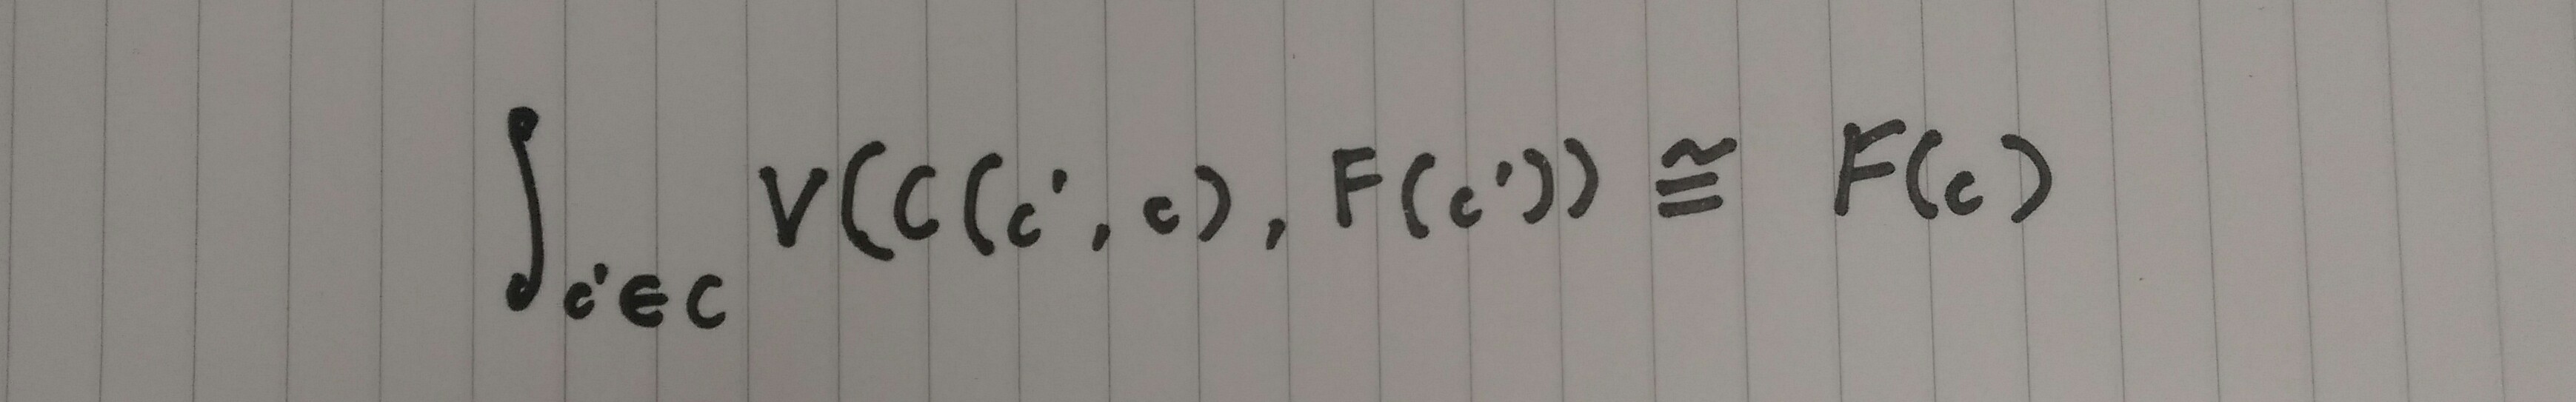 ∫_{c'∈C} V(C(c', c), F(c')) ≅ F(c)